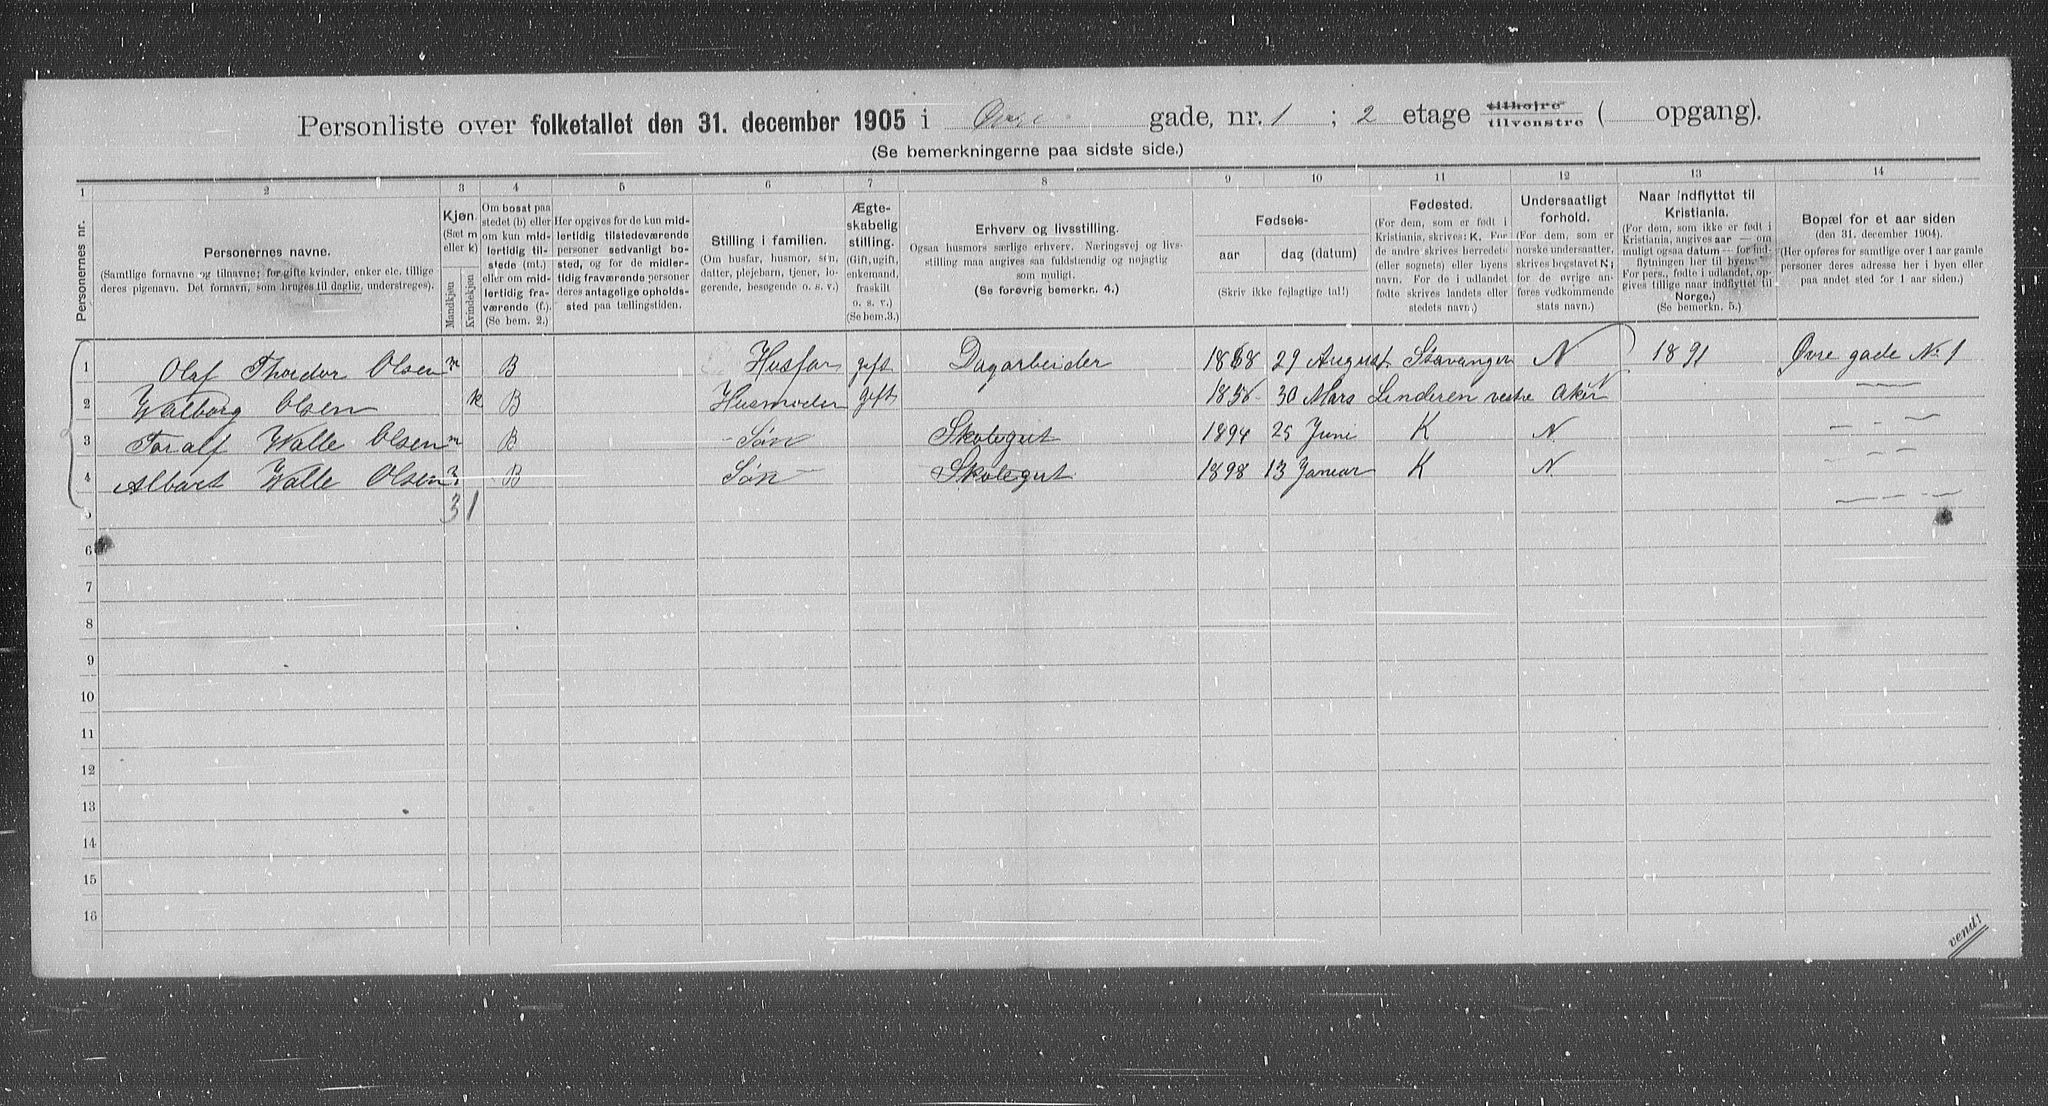 Personliste over folketallet den 31. december 1905 i Øvre gade, nr. 1 ; 2 etage tilhøjre tilvenstre ( opgang).
(Se bemerkningerne paa sidste side.)
1 2 3 4 5 6 7 8 9 10 11 12 13 14
Personernes nr.
Personernes navne.
(Samtlige fornavne og tilnavne; for gifte kvinder, enker etc. tillige deres pigenavn. Det fornavn, som bruges til daglig, understreges).
Kjøn. (Sæt m eller k)
Mandkjøn
Kvindekjøn
Om bosat paa stedet (b) eller om kun midlertidig tilstede (mt.) eller om midlertidig fraværende (f.). (Se bem. 2.)
Her opgives for de kun midlertidig tilstedeværende personer sedvanlig bosted, og for de midlertidig fraværende personer deres antagelige opholdssted paa tællingstiden.
Stilling i familien.
(Om husfar, husmor, søn, datter, plejebarn, tjener, logerende, besøgende o. s. v.)
Ægteskabelig stilling.
(Gift, ugift, enkemand, fraskilt o. s. v.) (Se bem. 3.)
Erhverv og livsstilling.
Ogsaa husmors særlige erhverv. Næringsvej og livsstilling maa angives saa fuldstændig og nøjagtig som muligt.
(Se forøvrig bemerkn. 4.)
Fødsels-
aar
dag (datum)
(Skriv ikke fejlagtige tal!)
Fødested.
(For dem, som er født i Kristiania, skrives: K. For de andre skrives herredets (eller sognets) eller byens navn. For de i udlandet fødte skrives landets eller stedets navn.)
Undersaatligt forhold.
(For dem, som er norske undersaatter, skrives bogstavet N; for de øvrige anføres vedkommende stats navn.)
Naar indflyttet til Kristiania.
(For dem, som ikke er født i Kristiania, angives aar — om muligt ogsaa datum — for indflytningen her til byen. For pers., fødte i udlandet, opgives tillige naar indflyttet til Norge.) (Se bemerkn. 5.)
Bopæl for et aar siden
(den 31. december 1904).
(Her opføres for samtlige over 1 aar gamle personer deres adresse her i byen eller paa andet sted for 1 aar siden.)
1 Olaf Thoedor Olsen m B Husfar gift Dagarbeider 1868 29 August Stavanger N 1891 Øvre gade No 1
2 Walborg Olsen k B Husmoder gift 1856 30 Mars Linderen vestre Aker N — — —
3 Toralf Walle Olsen m B Søn Skolegut 1894 25 Juni K N — — —
4 Albart Walle Olsen m B Søn Skolegut 1898 13 Januar K N — — —
5 3 1 — — —
6
7
8
9
10
11
12
13
14
15
16
vend!